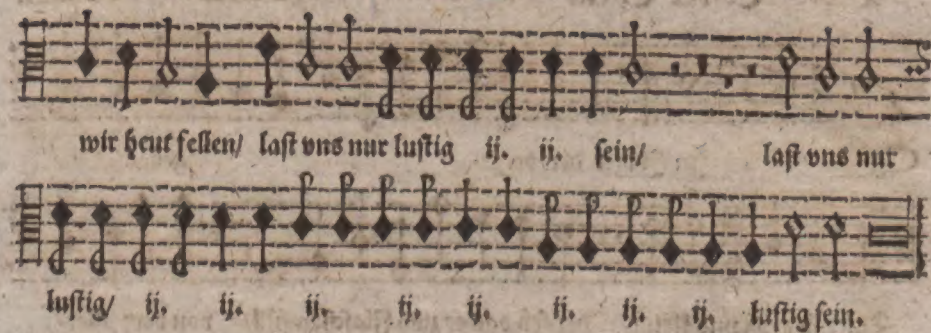 wir heut fellen/ last vns nur lustig ij. ij. sein/ last vns nur
lustig/ ij. ij. ij. ij. ij. ij. ij. ij. lustig sein.